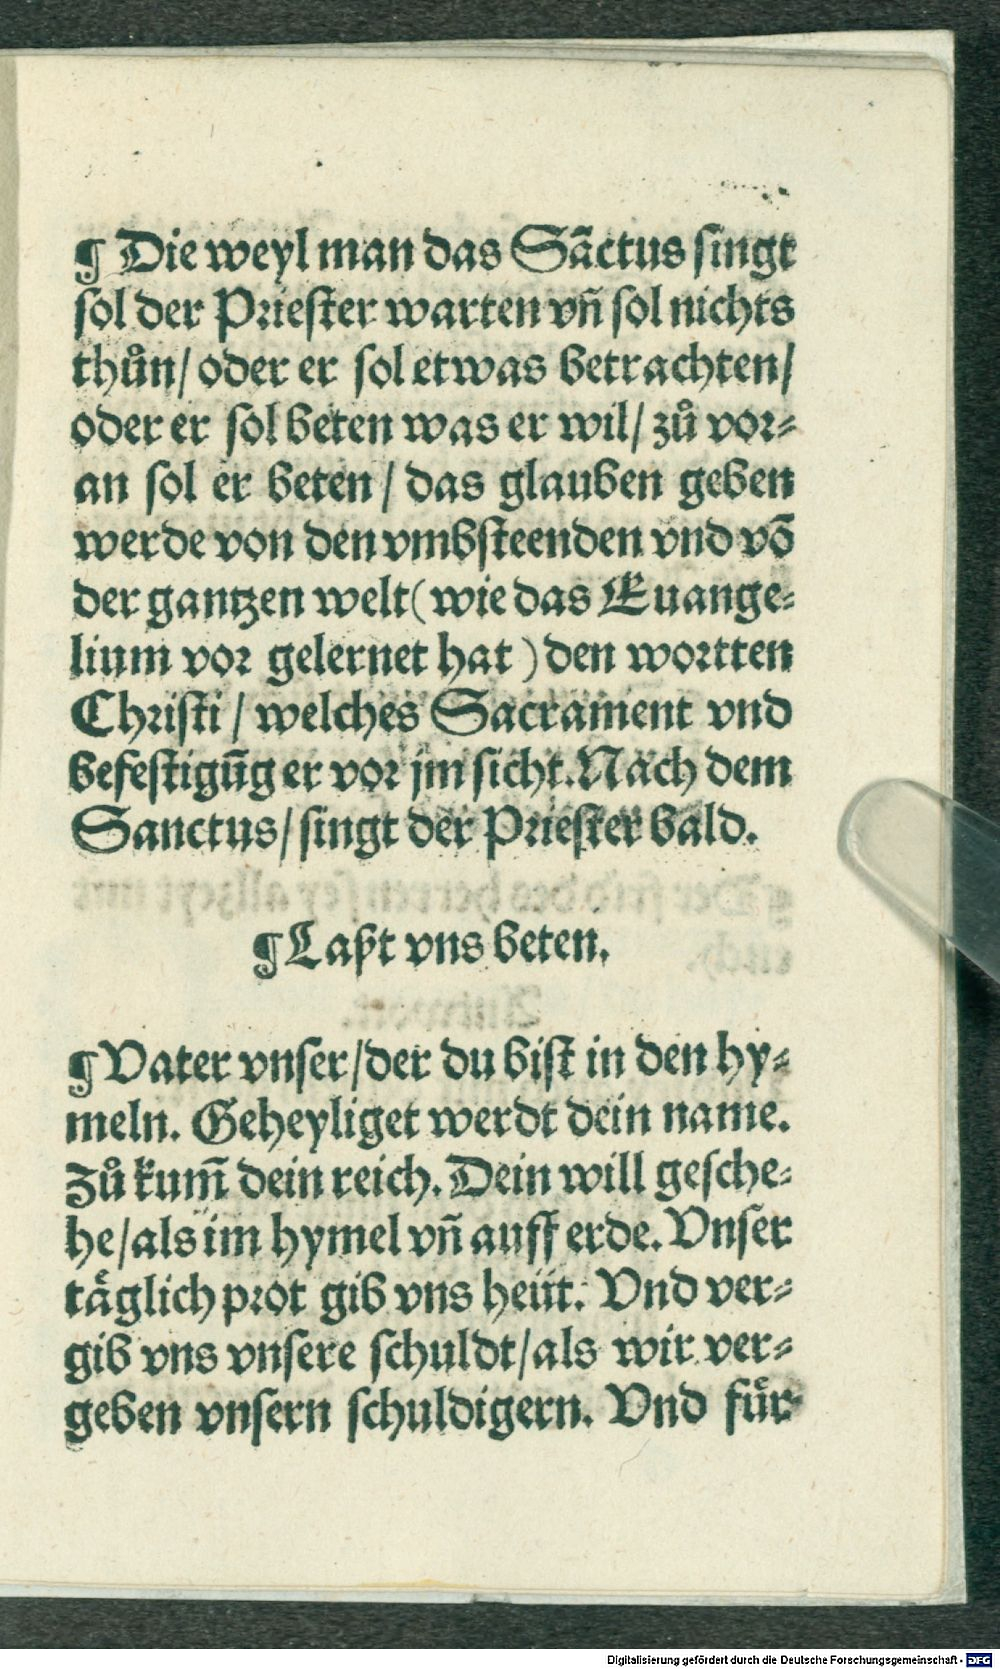 ¶ Die weyl man das Sãctus singt
sol der Priester warten vñ sol nichts
thůn/ oder er sol etwas betrachten/
oder er sol beten was er wil/ zů vor⸗
an sol er beten/ das glauben geben
werde von den vmbsteenden vnd võ
der gantzen welt (wie das Euange⸗
lium vor gelernet hat) den wortten
Christi/ welches Sacrament vnd
befestigūg er vor jm sicht. Nach dem
Sanctus/ singt der Priester bald.
¶ Laßt vns beten.
¶ Vater vnser/ der du bist in den hy⸗
meln. Geheyliget werdt dein name.
Zů kum̃ dein reich. Dein will gesche⸗
he/ als im hymel vñ auff erde. Vnser
tåglich prot gib vns heüt. Vnd ver⸗
gib vns vnsere schuldt/ als wir ver⸗
geben vnsern schuldigern. Vnd fuͤr
Digitalisierung gefördert durch die Deutsche Forschungsgemeinschaft - DFG